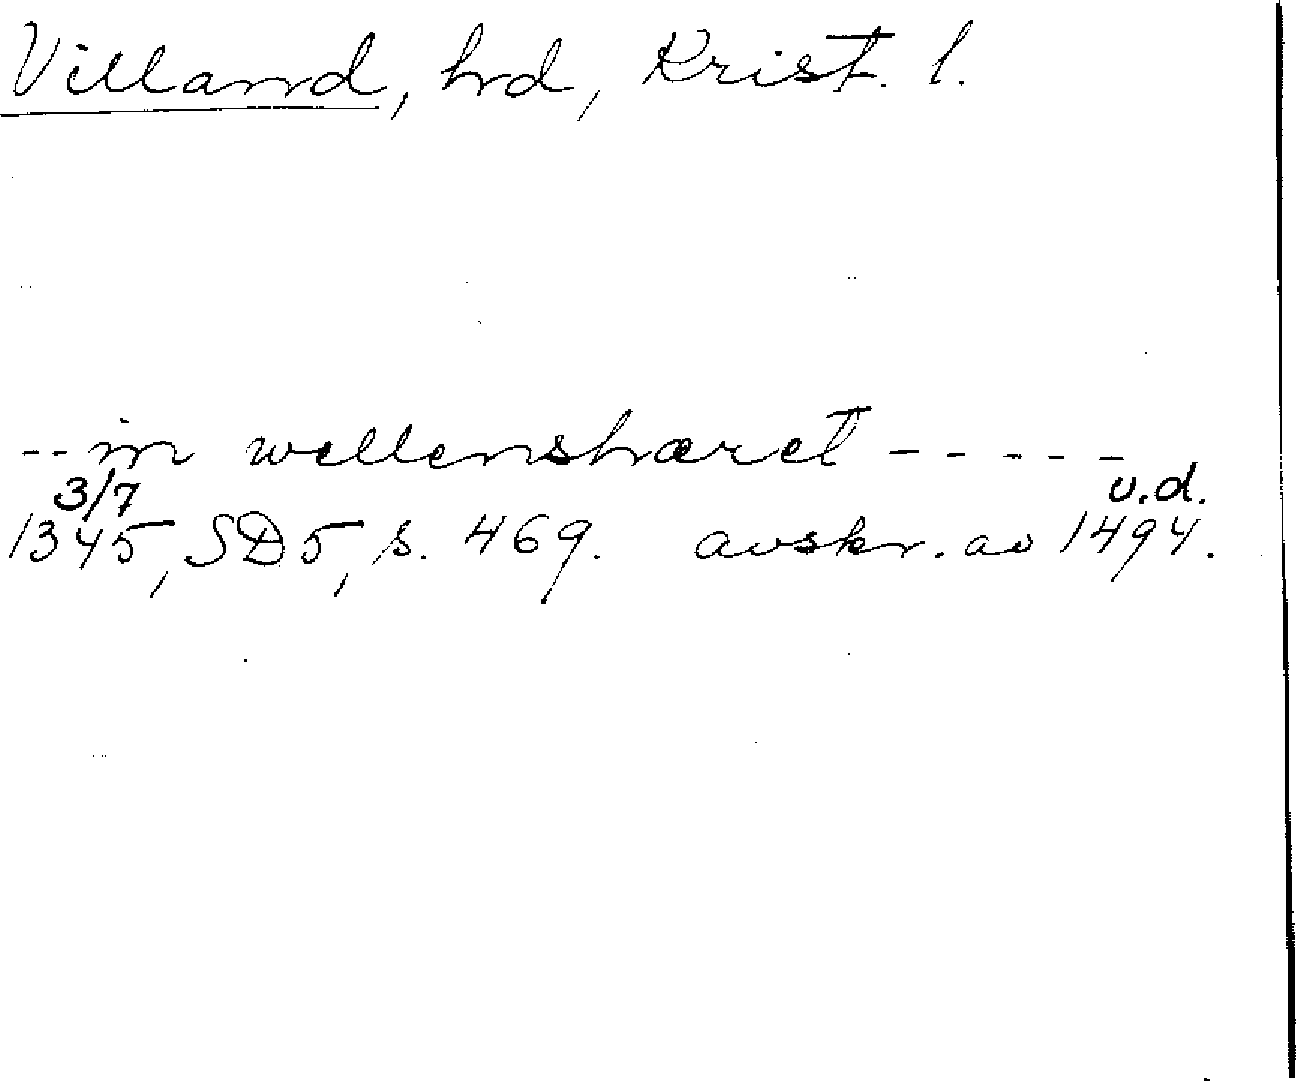 Villand, hrd, Krist. l.
-- in wellenshæret -----
3/7 u.d.
1345, SD5, s. 469. avskr. av 1494.